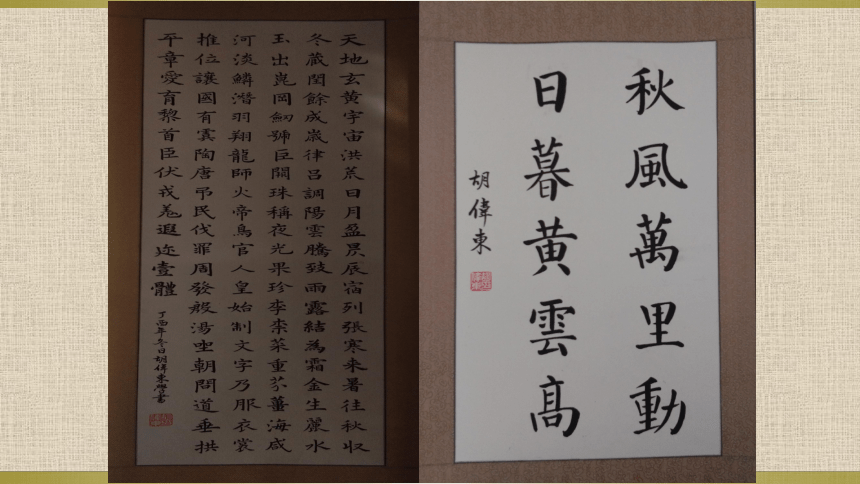 天地玄黄宇宙洪荒日月盈昃辰宿列張寒来暑往秋收
冬蔵閏餘成歳律吕調陽雲騰致雨露結為霜金生麗水
玉出崑岡劒號巨闕珠稱夜光果珍李柰菜重芥薑海咸
河淡鱗潛羽翔龍師火帝鳥官人皇始制文字乃服衣裳
推位讓國有虞陶唐弔民伐罪周發殷湯坐朝問道垂拱
平章愛育黎首臣伏戎羌遐迩壹體
丁酉年冬日胡偉東學書
秋風萬里動
日暮黄雲高
胡偉東